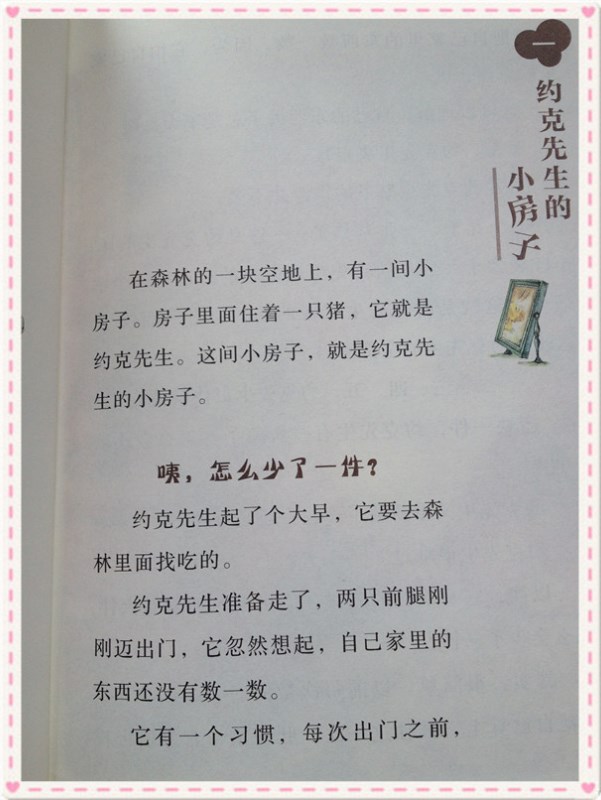 一
约克先生的
小房子
在森林的一块空地上，有一间小
房子。房子里面住着一只猪，它就是
约克先生。这间小房子，就是约克先
生的小房子。
咦，怎么少了一件？
约克先生起了个大早，它要去森
林里面找吃的。
约克先生准备走了，两只前腿刚
刚迈出门，它忽然想起，自己家里的
东西还没有数一数。
它有一个习惯，每次出门之前，